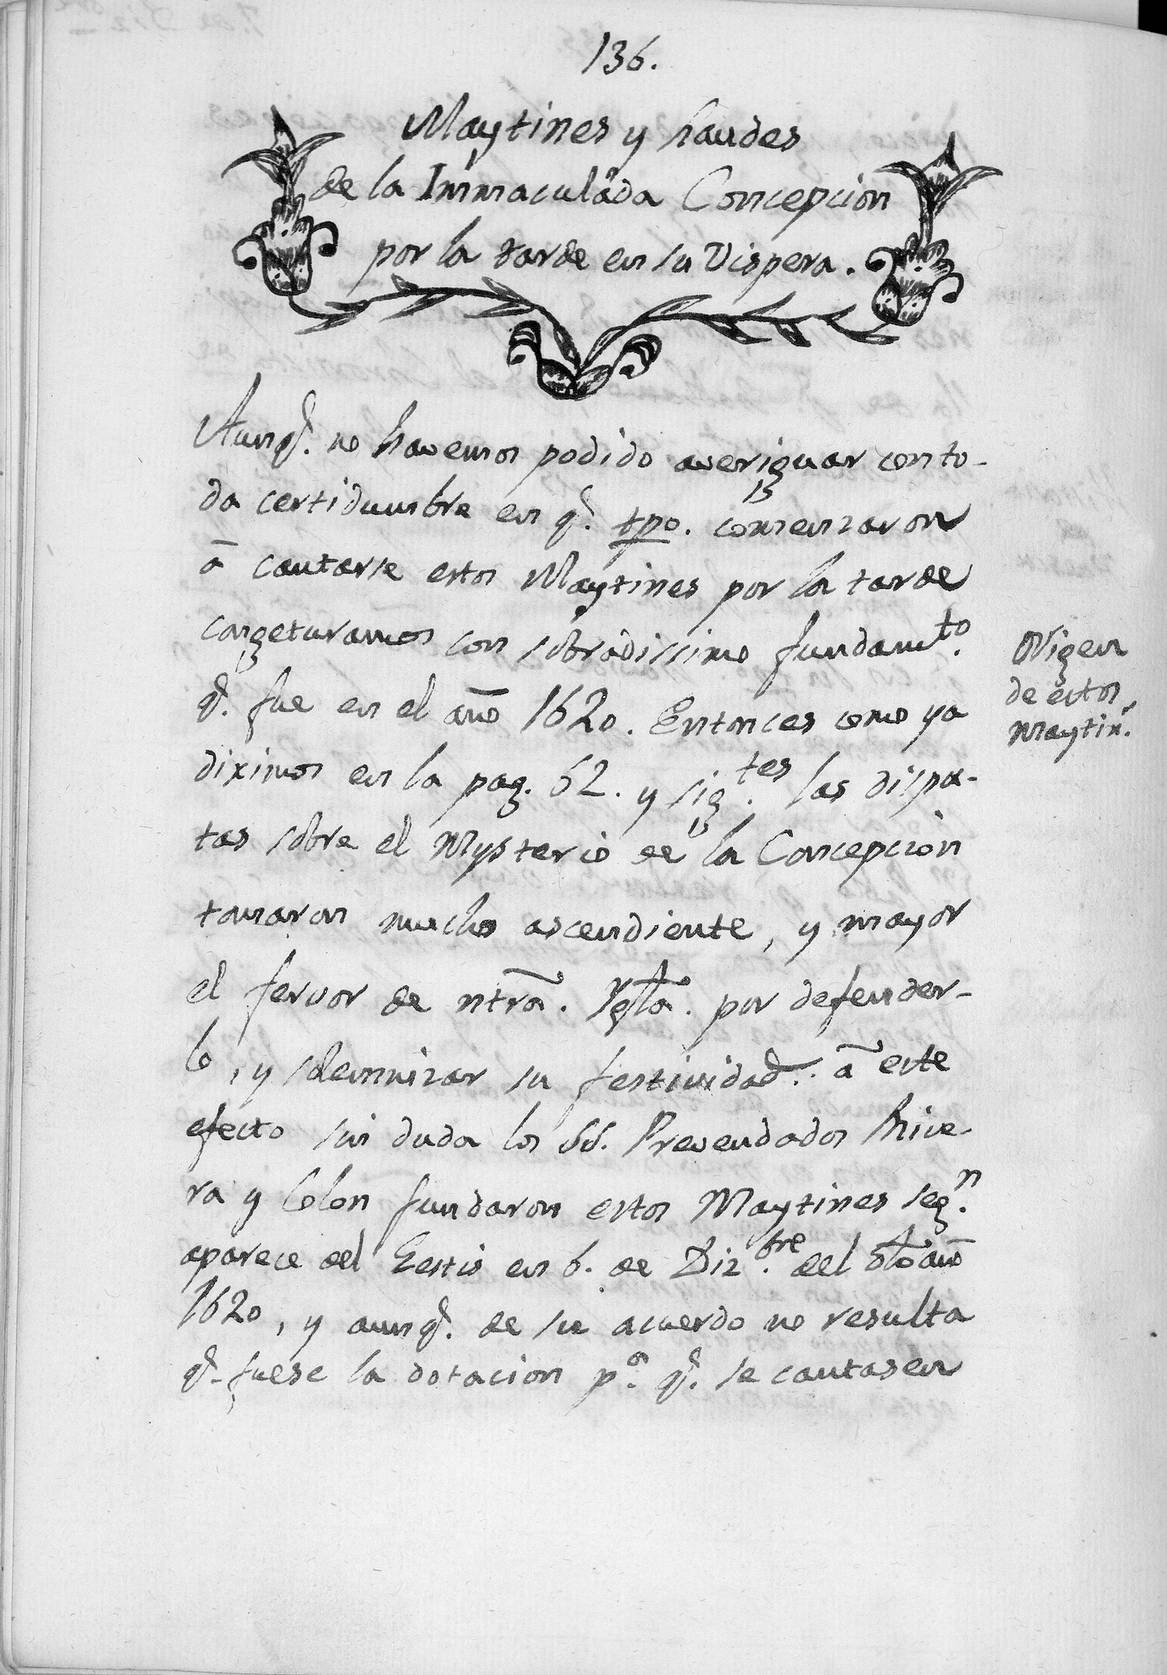 136.
Maytines y Laudes
de la Immaculada Concepcion
por la tarde en su Vispera.
Aunq̃. no havemos podido averiguar con to-
da certidumbre en q̃. tpo. comenzaron
a cantarse estos Maytines por la tarde
congeturamos con sobradissimo fundamto.
q̃. fue en el año 1620. Entonces como ya
diximos en la pag. 62. y sigtes. las dispu-
tas sobre el Mysterio de la Concepcion
tomaron mucho ascendiente, y mayor
el fervor de ntrã. Yglã. por defender-
lo, y solemnizar su festividad. à este
efecto sin duda los SS. Prevendados Rive-
ra y Colon fundaron estos Maytines segn.
aparece del Festis en 6. de Dizbre. del dho año
1620, y aunq̃. de su acuerdo no resulta
q̃. fuese la dotacion pa. q̃. se cantasen
Origen
de estos
Maytin.